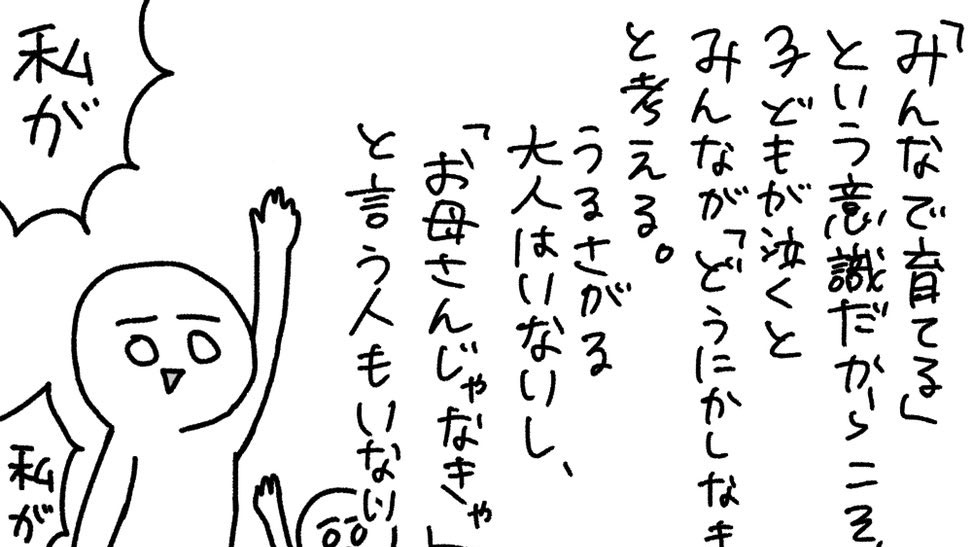 「みんなで育てる」
という意識だからこそ、
子どもが泣くと
みんなが「どうにかしなき
と考える。
うるさがる
大人はいないし、
「お母さんじゃなきゃ」
と言う人もいない
私が
私が